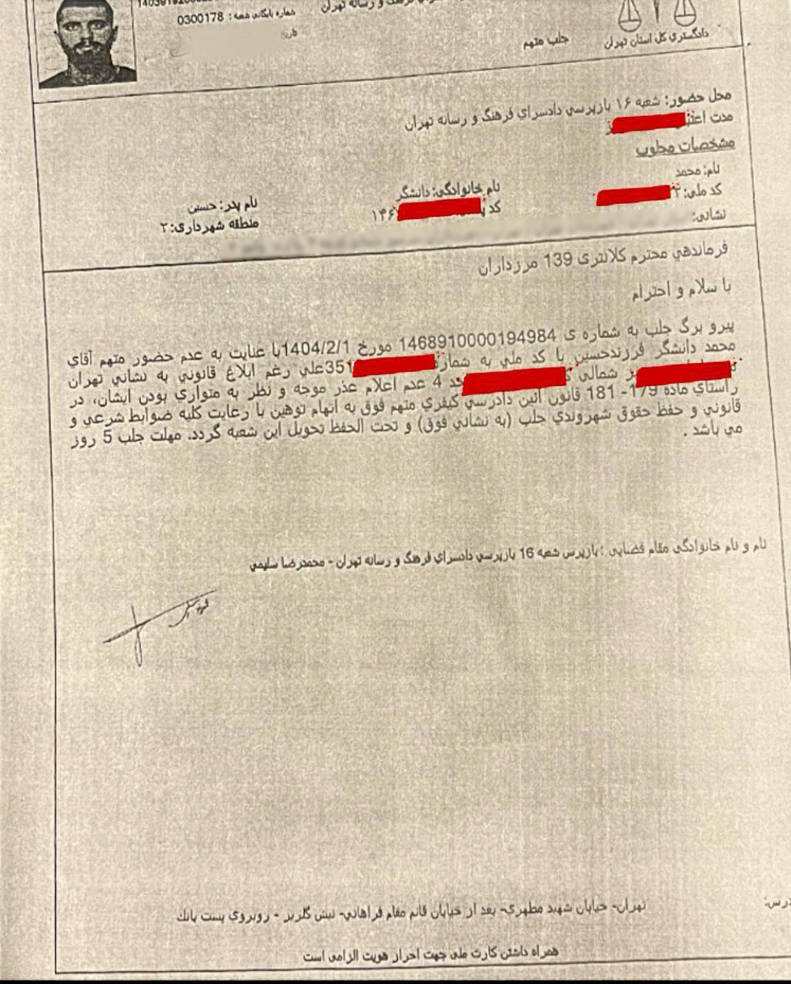 شماره بایگانی شعبه: 0300178
تاریخ
دادگستری کل استان تهران
جلب متهم
محل حضور: شعبه ۱۶ بازپرسي دادسراي فرهنگ و رسانه تهران
مدت
مشخصات مجلوب
نام: محمد
نام خانوادگی: دانشگر
نام پدر: حسین
کد ملی:
کد
۱۴۶
منطقه شهرداری: ۲
نشانی:
فرماندهي محترم کلانتری 139 مرزداران
با سلام و احترام
پیرو برگ جلب به شماره ی 1468910000194984 مورخ 1404/2/1با عنایت به عدم حضور متهم آقاي
محمد دانشگر فرزندحسین با کد ملي به شماره 351علي رغم ابلاغ قانوني به نشاني تهران
شمالی 4 عدم اعلام عذر موجه و نظر به متواري بودن ایشان، در
راستاي ماده 179- 181 قانون آئین دادرسي کیفري متهم فوق به اتهام توهین با رعایت کلیه ضوابط شرعي و
قانوني و حفظ حقوق شهروندي جلب (به نشاني فوق) و تحت الحفظ تحویل این شعبه گردد. مهلت جلب 5 روز
مي باشد .
نام و نام خانوادگی مقام قضایی : بازپرس شعبه 16 بازپرسي دادسراي فرهنگ و رسانه تهران - محمدرضا سلیمي
تهران- خیابان شهید مطهری- بعد از خیابان قائم مقام فراهانی- نبش گلریز - روبروي پست بانك
همراه داشتن کارت ملی جهت احراز هویت الزامی است